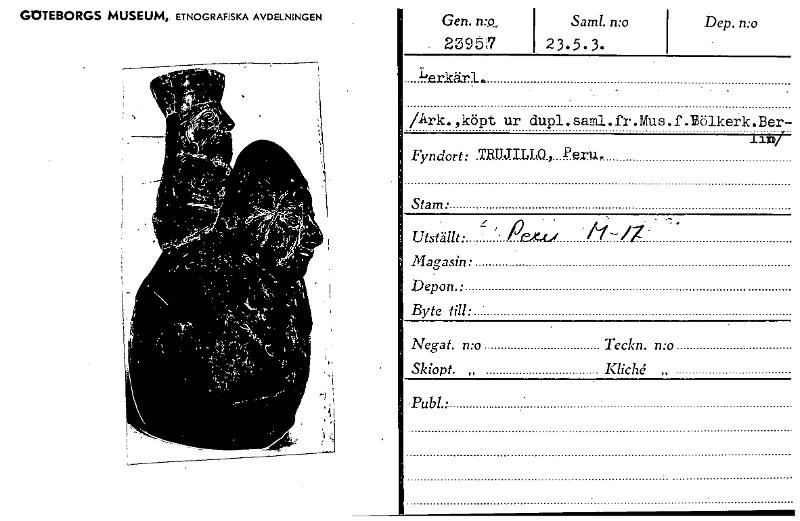 GÖTEBORGS MUSEUM, ETNOGRAFISKA AVDELNINGEN
Gen. n:o Saml. n:o Dep. n:o
23957 23.5.3.
Lerkärl.
/Ark.,köpt ur dupl.saml.fr.Mus.f.Völkerk.Ber-
lin/
Fyndort: TRUJILLO, Peru.
Stam:
Utställt: Peru M-17
Magasin:
Depon.:
Byte till:
Negat. n:o Teckn. n:o
Skiopt. „ Kliché „
Publ.: